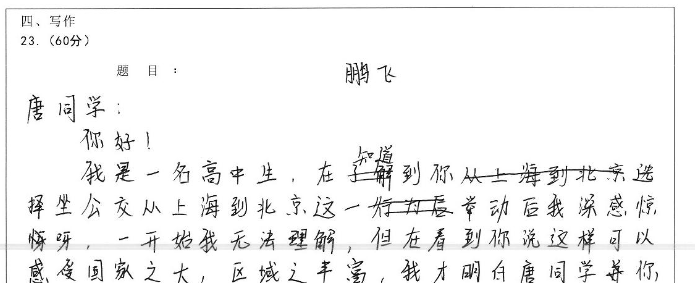 四、写作
23.（60分）
题 目 ： 鹏飞
唐同学：
你好！
知道
我是一名高中生，在了解到你从上海到北京选
择坐公交从上海到北京这一行为后举动后我深感惊
讶呀，一开始我无法理解，但在看到你说这样可以
感受国家之大，区域之丰富，我才明白唐同学并你